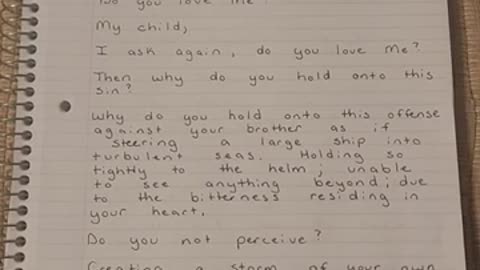 Do you love me?
My child,
I ask again, do you love me?
Then why do you hold onto this
sin?
Why do you hold onto this offense
against your brother as if
steering a large ship into
turbulent seas. Holding so
tightly to the helm; unable
to see anything beyond; due
to the bitterness residing in
your heart.
Do you not perceive?
Creating a storm of your own